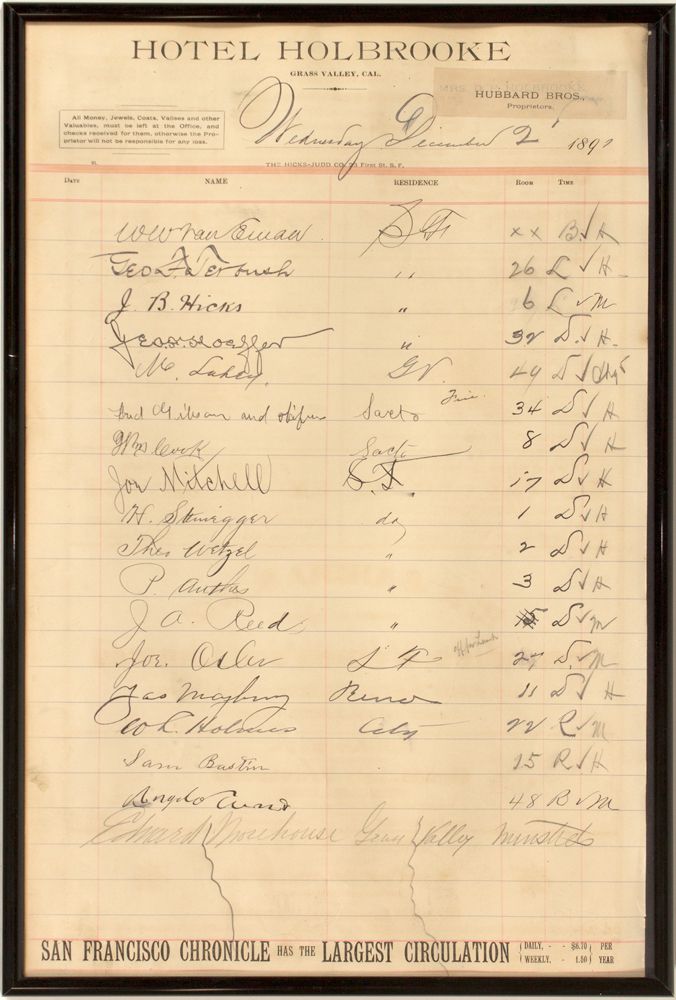 HOTEL HOLBROOKE
GRASS VALLEY, CAL.
HUBBARD BROS.,
Proprietors.
All Money, Jewels, Coats, Valises and other
Valuables, must be left at the Office, and
checks received for them, otherwise the Pro-
prietor will not be responsible for any loss.
Wednesday December 2 1891
THE HICKS-JUDD CO. 23 First St. S. F.
DATE NAME RESIDENCE ROOM TIME
W W Van Eman S F x x B. √ H
Geo. 〃 26 L √ H
J. B. Hicks 〃 6 L √ M
〃 32 D. √ H
Mc. Lahey. G V. 49 D √
Bud Gibson and Sacto 34 D √ H
Wm Cook Sacto 8 D √ H
Jon Mitchell S. F. 17 D √ H
H. Steinegger do 1 D √ H
Theo Wetzel 〃 2 D √ H
P. 〃 3 D √ H
J A. Reed 〃 D √ M
Joe. Osler S F 27 D. √ M
Jas Mayberry Reno 11 D √ H
W L. Holmes City 22 R √ M
Sam Bustin 15 R √ H
Angelo 48 B √ M
Edward Morehouse Grass Valley Minstrels
SAN FRANCISCO CHRONICLE HAS THE LARGEST CIRCULATION { DAILY, - - $6.70 } PER
{ WEEKLY, - 1.50 } YEAR